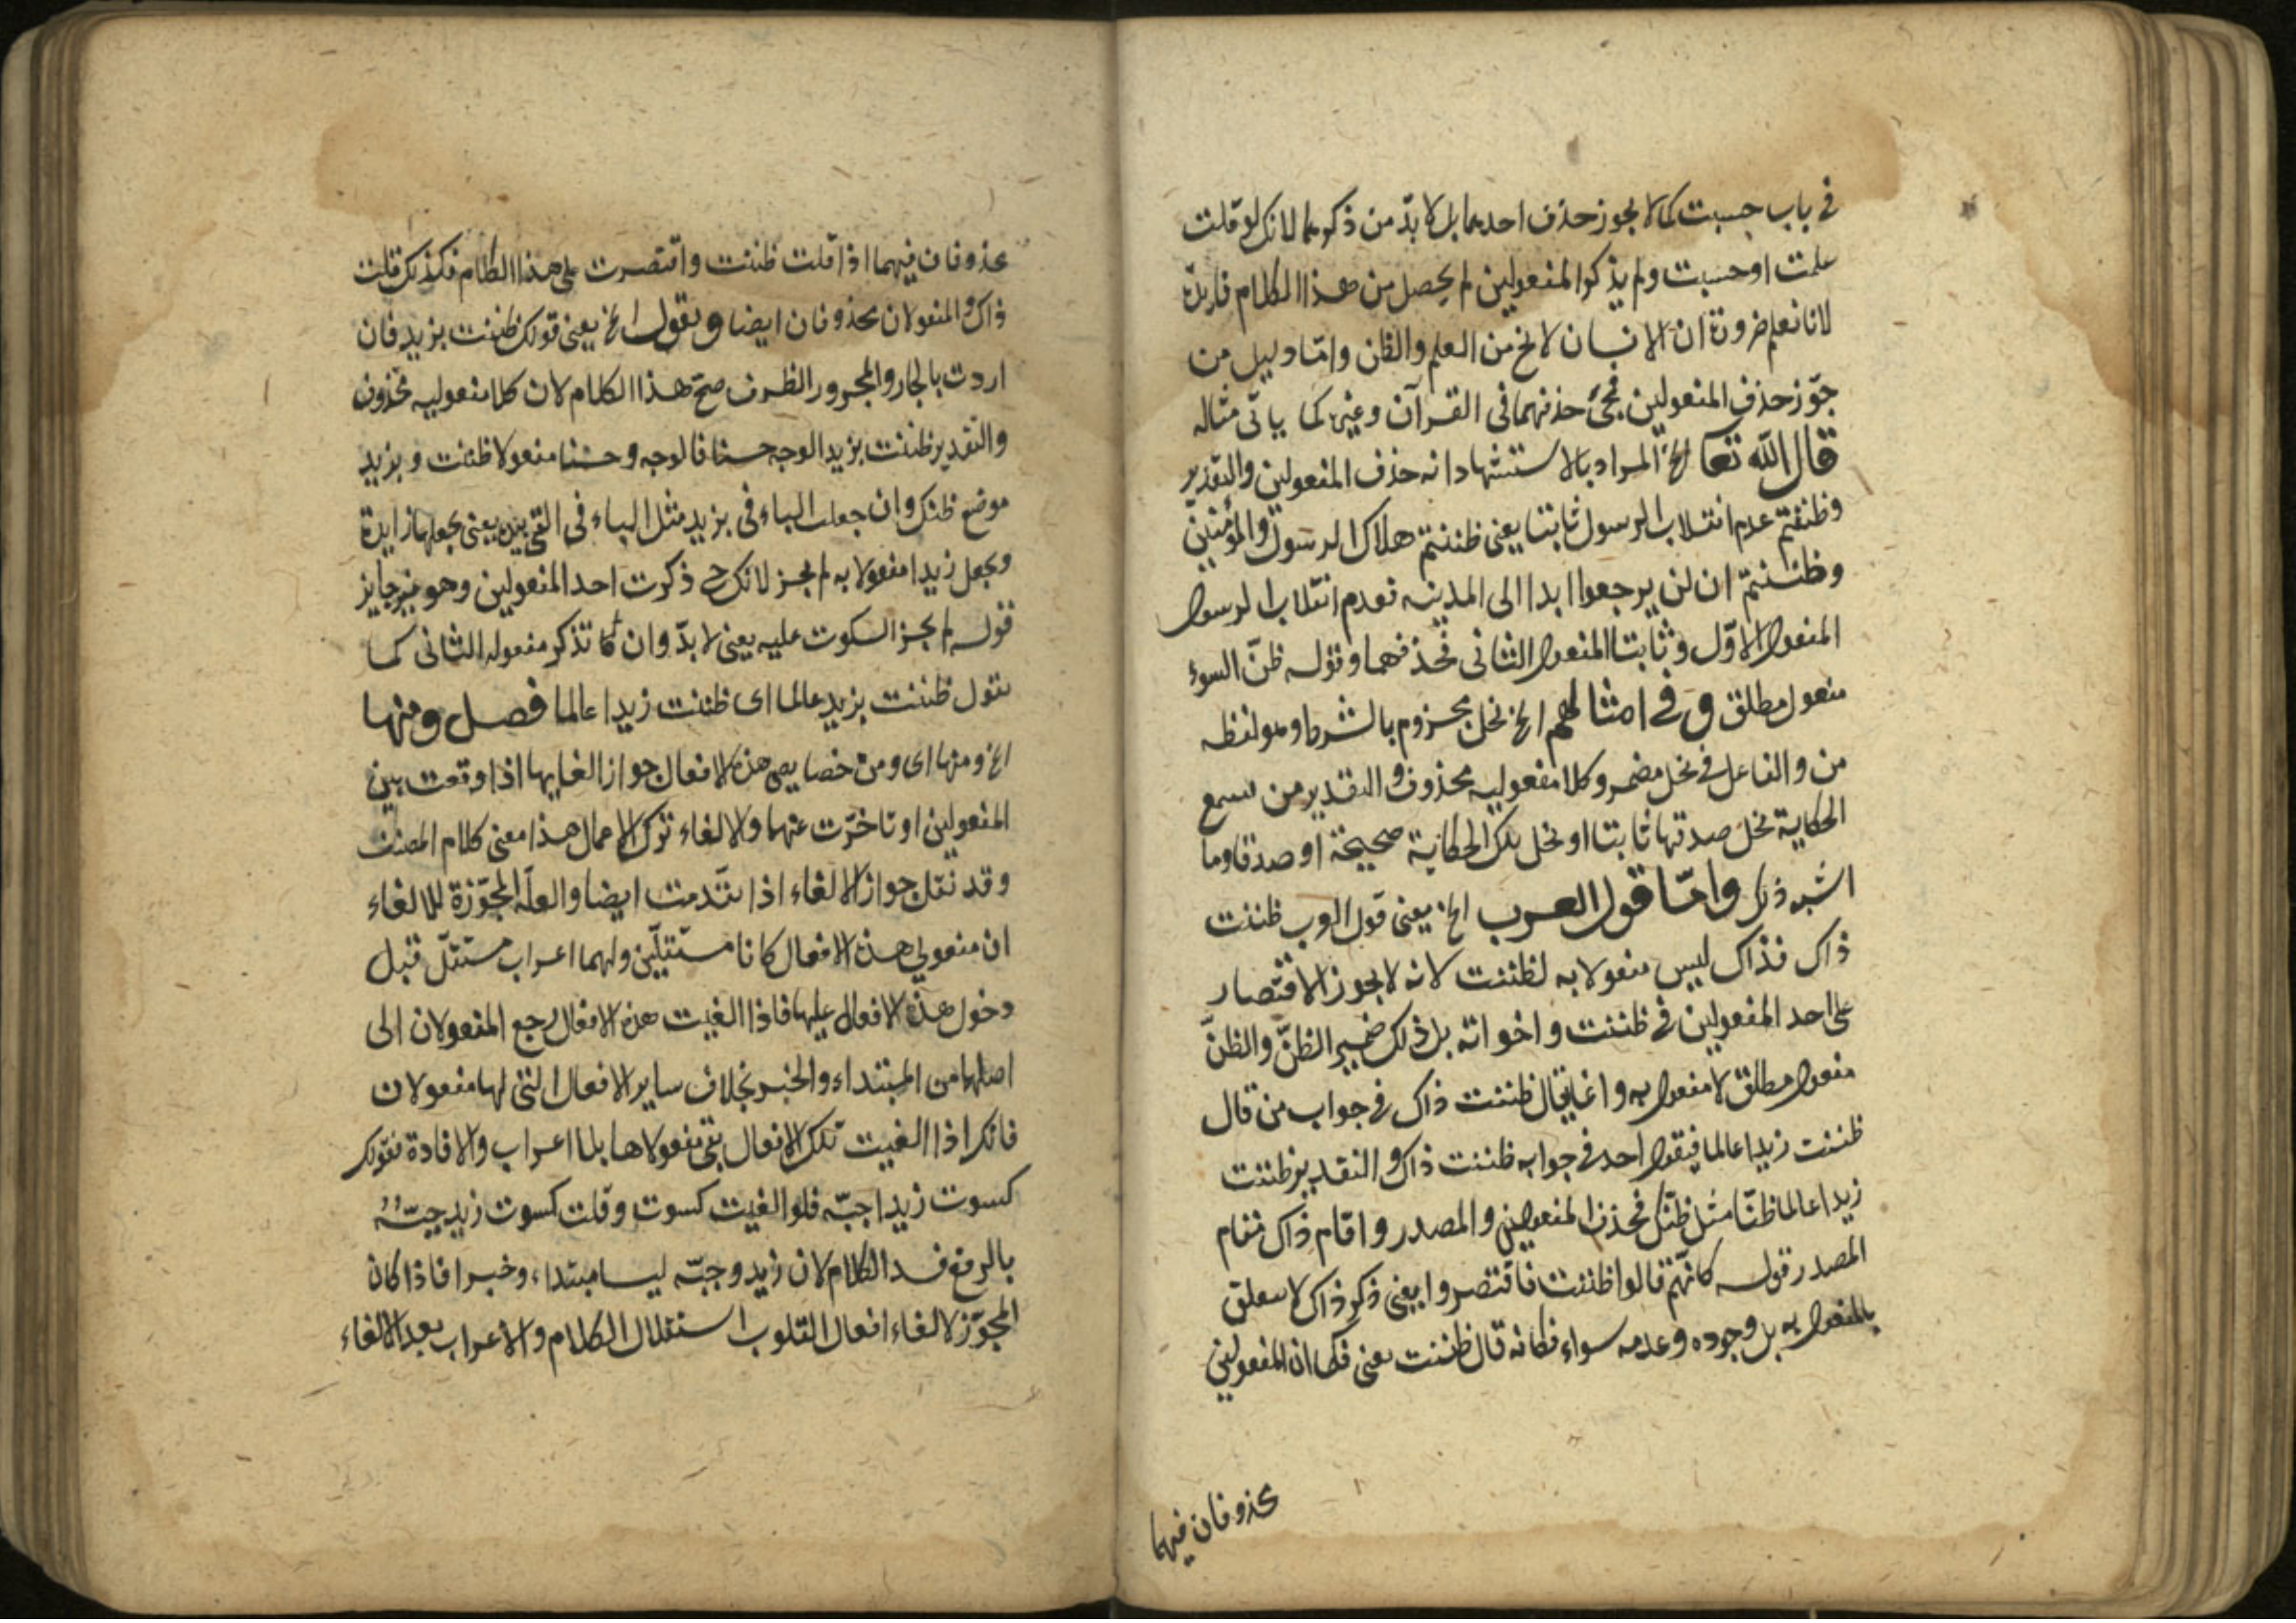 في باب حسبت كما لا يجوز حذف احدهما بل لا بدّ من ذكرهما لانك لو قلت
علمت او حسبت ولم يذكر المفعولين لم يحصل من هذا الكلام فايدة
لانا نعلم ضرورة ان الانسان لا يخ من العلم والظن وامّا دليل من
جوّز حذف المفعولين فمجئ حذفهما في القرآن وغيره كما ياتي مثاله
قال الله تعا الخ المراد بالاستشهاد انه حذف المفعولين والتقدير
وظننتم عدم انقلاب الرسول ثابتا يعني ظننتم هلاك الرسول والمؤمنين
وظننتم ان لن يرجعوا ابدا الى المدينه فعدم انقلاب الرسول
المفعول الاوّل وثابتا المفعول الثاني فحذفهما وقوله ظنّ السوء
مفعول مطلق وفي امثالهم الخ يخل مجزوم بالشرط وهو لفظه
من والفاعل في يخل مضمر وكلا مفعوليه محذوف والتقدير من يسمع
الحكاية يخل صدقها ثابتا او يخل تلك الحكاية صحيحة او صدقا وما
اشبه ذلك وامّا قول العرب الخ يعني قول العرب ظننت
ذاك فذاك ليس مفعولا به لظننت لانه لا يجوز الاقتصار
على احد المفعولين في ظننت واخواته بل ذلك ضمير الظنّ والظنّ
مفعول مطلق لا مفعول به وانما يقال ظننت ذاك في جواب من قال
ظننت زيدا عالما فيقول احد في جوابه ظننت ذاك والتقدير ظننت
زيدا عالما ظنّا مثل ظنّك فحذف المفعولين والمصدر واقام ذاك مقام
المصدر قوله كانّهم قالوا ظننت فاقتصروا يعني ذكر ذاك لا يتعلق
بالمفعول به بل وجوده وعدمه سواء فكانه قال ظننت يعني فكما ان المفعولين
محذوفان فيهما
محذوفان فيهما اذا قلت ظننت واقتصرت على هذا الكلام فكذلك قلت
ذاك والمفعولان محذوفان ايضا وبقول الخ يعني قولك ظننت بزيد فان
اردت بالجار والمجرور الظرف صحّ هذا الكلام لان كلا مفعوليه محذوف
والتقدير ظننت بزيد الوجه حسنا فالوجه وحسنا مفعولا ظننت وبزيد
موضع ظنك وان جعلت الباء في بزيد مثل الباء في القى بيده يعني تجعلها زايدة
وتجعل زيدا مفعولا به لم يجز لانك ح ذكرت احد المفعولين وهو غير جايز
قوله لم يجز السكوت عليه يعني لا بدّ وان تذكر مفعوله الثاني كما
تقول ظننت بزيد عالما اى ظننت زيدا عالما فصل ومنها
الخ ومنها اى ومن خصايص هذه الافعال جواز الغايها اذا وقعت بين
المفعولين او تاخّرت عنهما والالغاء ترك الاعمال هذا معنى كلام المصنف
وقد نقل جواز الالغاء اذا تقدمت ايضا والعلّه المجوّزة للالغاء
ان مفعولي هذه الافعال كانا مستقلّين ولهما اعراب مستقلّ قبل
دخول هذه الافعال عليها فاذا الغيت هذه الافعال رجع المفعولان الى
اصلهما من المبتداء والخبر بخلاف ساير الافعال التي لها مفعولان
فانك اذا الغيت تلك الافعال بقى مفعولاها بلا اعراب والافادة نقولك
كسوت زيدا جبّه فلو الغيت كسوت وقلت كسوت زيد جبّةٌ
بالرفع فسد الكلام لان زيد وجبّه ليسا مبتداء وخبرا فاذا كان
المجوّز لالغاء افعال القلوب استقلال الكلام والاعراب بعد الالغاء